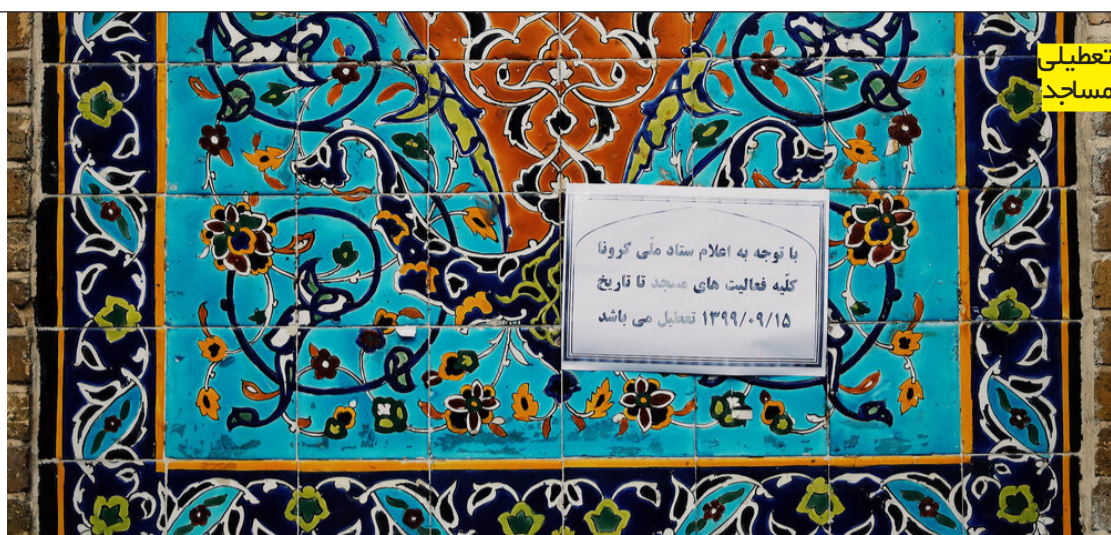 تعطیلی
مساجد
با توجه به اعلام ستاد ملّی کرونا
کلّیه فعالیت های مسجد تا تاریخ
۱۳۹۹/۰۹/۱۵ تعطیل می باشد